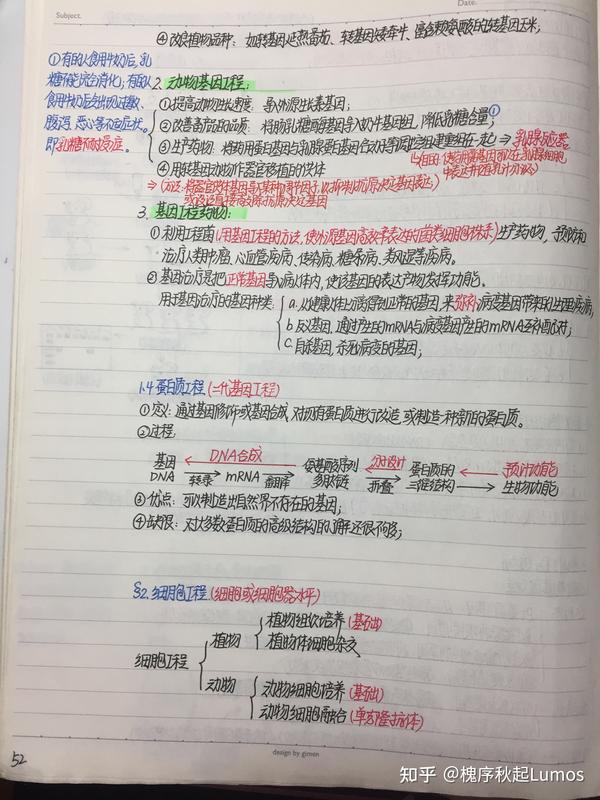 Subject.
Date.
④ 改良植物品种: 如转基因延熟番茄、转基因矮牵牛、富含赖氨酸的转基因玉米;
① 有的人食用牛奶后,乳
糖不能完全消化;有的人
食用牛奶后会出现过敏、
腹泻、恶心等不适应状。
即乳糖不耐受症。
2. 动物基因工程:
① 提高动物生长速度: 导入外源生长素基因;
② 改善畜产品的品质: 将肠乳糖酶基因导入奶牛基因组,降低乳糖含量;①
③ 生产药物: 将药用蛋白基因与乳腺蛋白基因启动子等调控组件重组在一起 ⇒ 乳腺反应器
④ 用转基因动物作器官移植的供体
⇒ (方法: 将器官供体基因导入某种调节因子,以抑制抗原决定基因表达)
或设法直接去除抗原决定基因
3. 基因工程药物:
① 利用工程菌(用基因工程的方法,使外源基因高效率表达的菌类细胞株系)生产药物, 预防和
治疗人类肿瘤、心血管疾病、传染病、糖尿病、类风湿等疾病。
② 基因治疗是把正常基因导入病人体内,使该基因的表达产物发挥功能。
用于基因治疗的基因种类:
a. 从健康人体上分离得到正常的基因,来弥补病变基因带来的生理疾病;
b. 反义基因,通过产生的mRNA与病变基因产生的mRNA互补配对;
c. 自杀基因,杀死病变的基因;
1.4 蛋白质工程 (二代基因工程)
① 定义: 通过基因修饰或基因合成,对现有蛋白质进行改造,或制造一种新的蛋白质。
② 过程:
基因 DNA合成 氨基酸序列 分子设计 蛋白质的 预计功能
DNA 转录 mRNA 翻译 多肽链 折叠 三维结构 生物功能
③ 优点: 可以制造出自然界不存在的基因;
④ 缺限: 对大多数蛋白质的高级结构的了解还很不够;
§2. 细胞工程 (细胞或细胞器水平)
植物组织培养 (基础)
植物
植物体细胞杂交
细胞工程
动物细胞培养 (基础)
动物
动物细胞融合 (单克隆抗体)
design by gimen
52
知乎 @槐序秋起Lumos